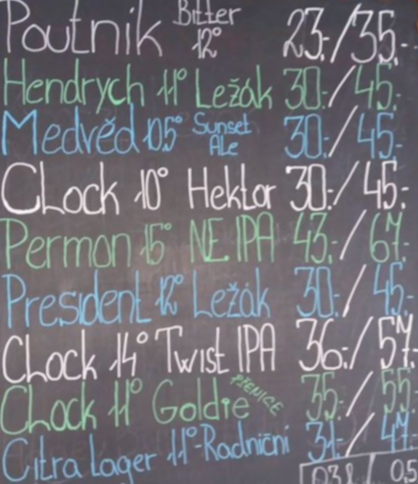 Poutník Bitter 12° 23.-/35.-
Hendrych 11° Ležák 30.-/45.-
Medvěd 10.5° Sunset Ale 30.-/45.-
CLock 10° Hektor 30.-/45.-
Permon 15° NE IPA 43.-/67.-
President 12° Ležák 30.-/45.-
CLock 14° Twist IPA 36.-/57.-
CLock 11° Goldie PŠENICE 35.-/55.-
Citra Lager 11°-Radniční 31.-/47.-
0,3l / 0,5